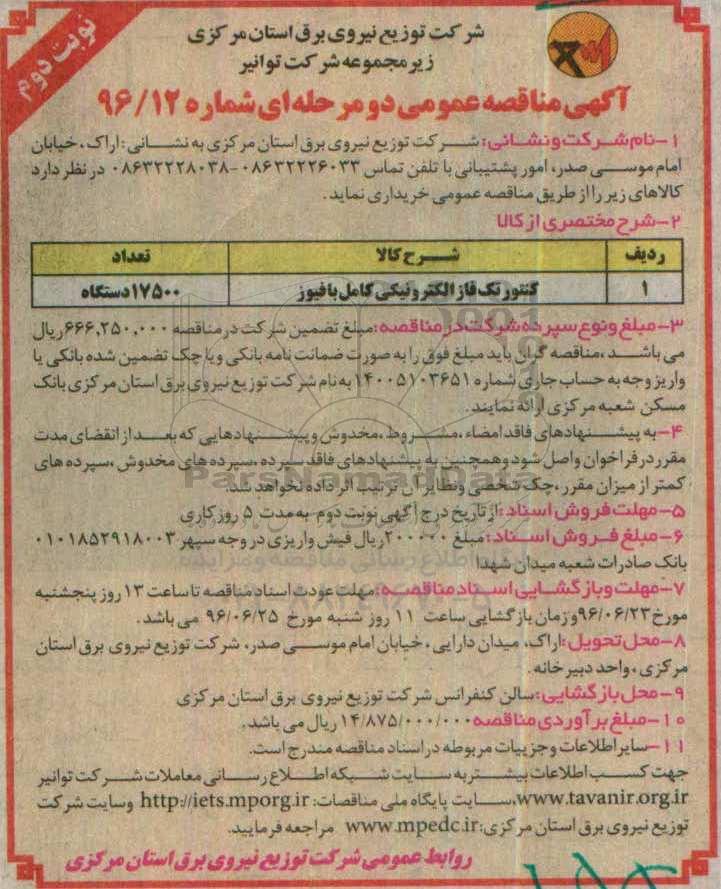 شرکت توزیع نیروی برق استان مرکزی
زیرمجموعه شرکت توانیر
نوبت دوم
آگهی مناقصه عمومی دو مرحله ای شماره ۹۶/۱۲
۱-نام شرکت و نشانی: شرکت توزیع نیروی برق استان مرکزی به نشانی: اراک، خیابان
امام موسی صدر، امور پشتیبانی با تلفن تماس ۰۸۶۳۲۲۲۶۰۳۳-۰۸۶۳۲۲۲۸۰۳۸ در نظر دارد
کالاهای زیر را از طریق مناقصه عمومی خریداری نماید.
۲-شرح مختصری از کالا
ردیف شرح کالا تعداد
۱ کنتور تک فاز الکترونیکی کامل با فیوز ۱۷۵۰۰ دستگاه
۳-مبلغ و نوع سپرده شرکت در مناقصه: مبلغ تضمین شرکت در مناقصه ۶۶۶,۲۵۰,۰۰۰ ریال
می باشد، مناقصه گران باید مبلغ فوق را به صورت ضمانت نامه بانکی و یا چک تضمین شده بانکی یا
واریز وجه به حساب جاری شماره ۱۴۰۰۵۱۰۳۶۵۱ به نام شرکت توزیع نیروی برق استان مرکزی بانک
مسکن شعبه مرکزی ارائه نمایند.
۴-به پیشنهادهای فاقد امضاء، مشروط، مخدوش و پیشنهادهایی که بعد از انقضای مدت
مقرر در فراخوان واصل شود و همچنین به پیشنهادهای فاقد سپرده، سپرده های مخدوش، سپرده های
کمتر از میزان مقرر، چک شخصی ونظایر آن ترتیب اثر داده نخواهد شد.
ParsNamadData
۵-مهلت فروش اسناد: از تاریخ درج آگهی نوبت دوم به مدت ۵ روز کاری
۶-مبلغ فروش اسناد: مبلغ ۲۰۰۰۰۰ ریال فیش واریزی در وجه سپهر ۰۱۰۱۸۵۲۹۱۸۰۰۳
بانک صادرات شعبه میدان شهدا
۷-مهلت و بازگشایی اسناد مناقصه: مهلت عودت اسناد مناقصه تا ساعت ۱۳ روز پنجشنبه
مورخ ۹۶/۰۶/۲۳ و زمان بازگشایی ساعت ۱۱ روز شنبه مورخ ۹۶/۰۶/۲۵ می باشد.
۸-محل تحویل: اراک، میدان دارایی، خیابان امام موسی صدر، شرکت توزیع نیروی برق استان
مرکزی، واحد دبیرخانه.
۹-محل بازگشایی: سالن کنفرانس شرکت توزیع نیروی برق استان مرکزی
۱۰-مبلغ برآوردی مناقصه ۱۴/۸۷۵/۰۰۰/۰۰۰ ریال می باشد.
۱۱-سایر اطلاعات و جزییات مربوطه در اسناد مناقصه مندرج است.
جهت کسب اطلاعات بیشتر به سایت شبکه اطلاع رسانی معاملات شرکت توانیر
www.tavanir.org.ir، سایت پایگاه ملی مناقصات: http://iets.mporg.ir وسایت شرکت
توزیع نیروی برق استان مرکزی: www.mpedc.ir مراجعه فرمایید.
روابط عمومی شرکت توزیع نیروی برق استان مرکزی